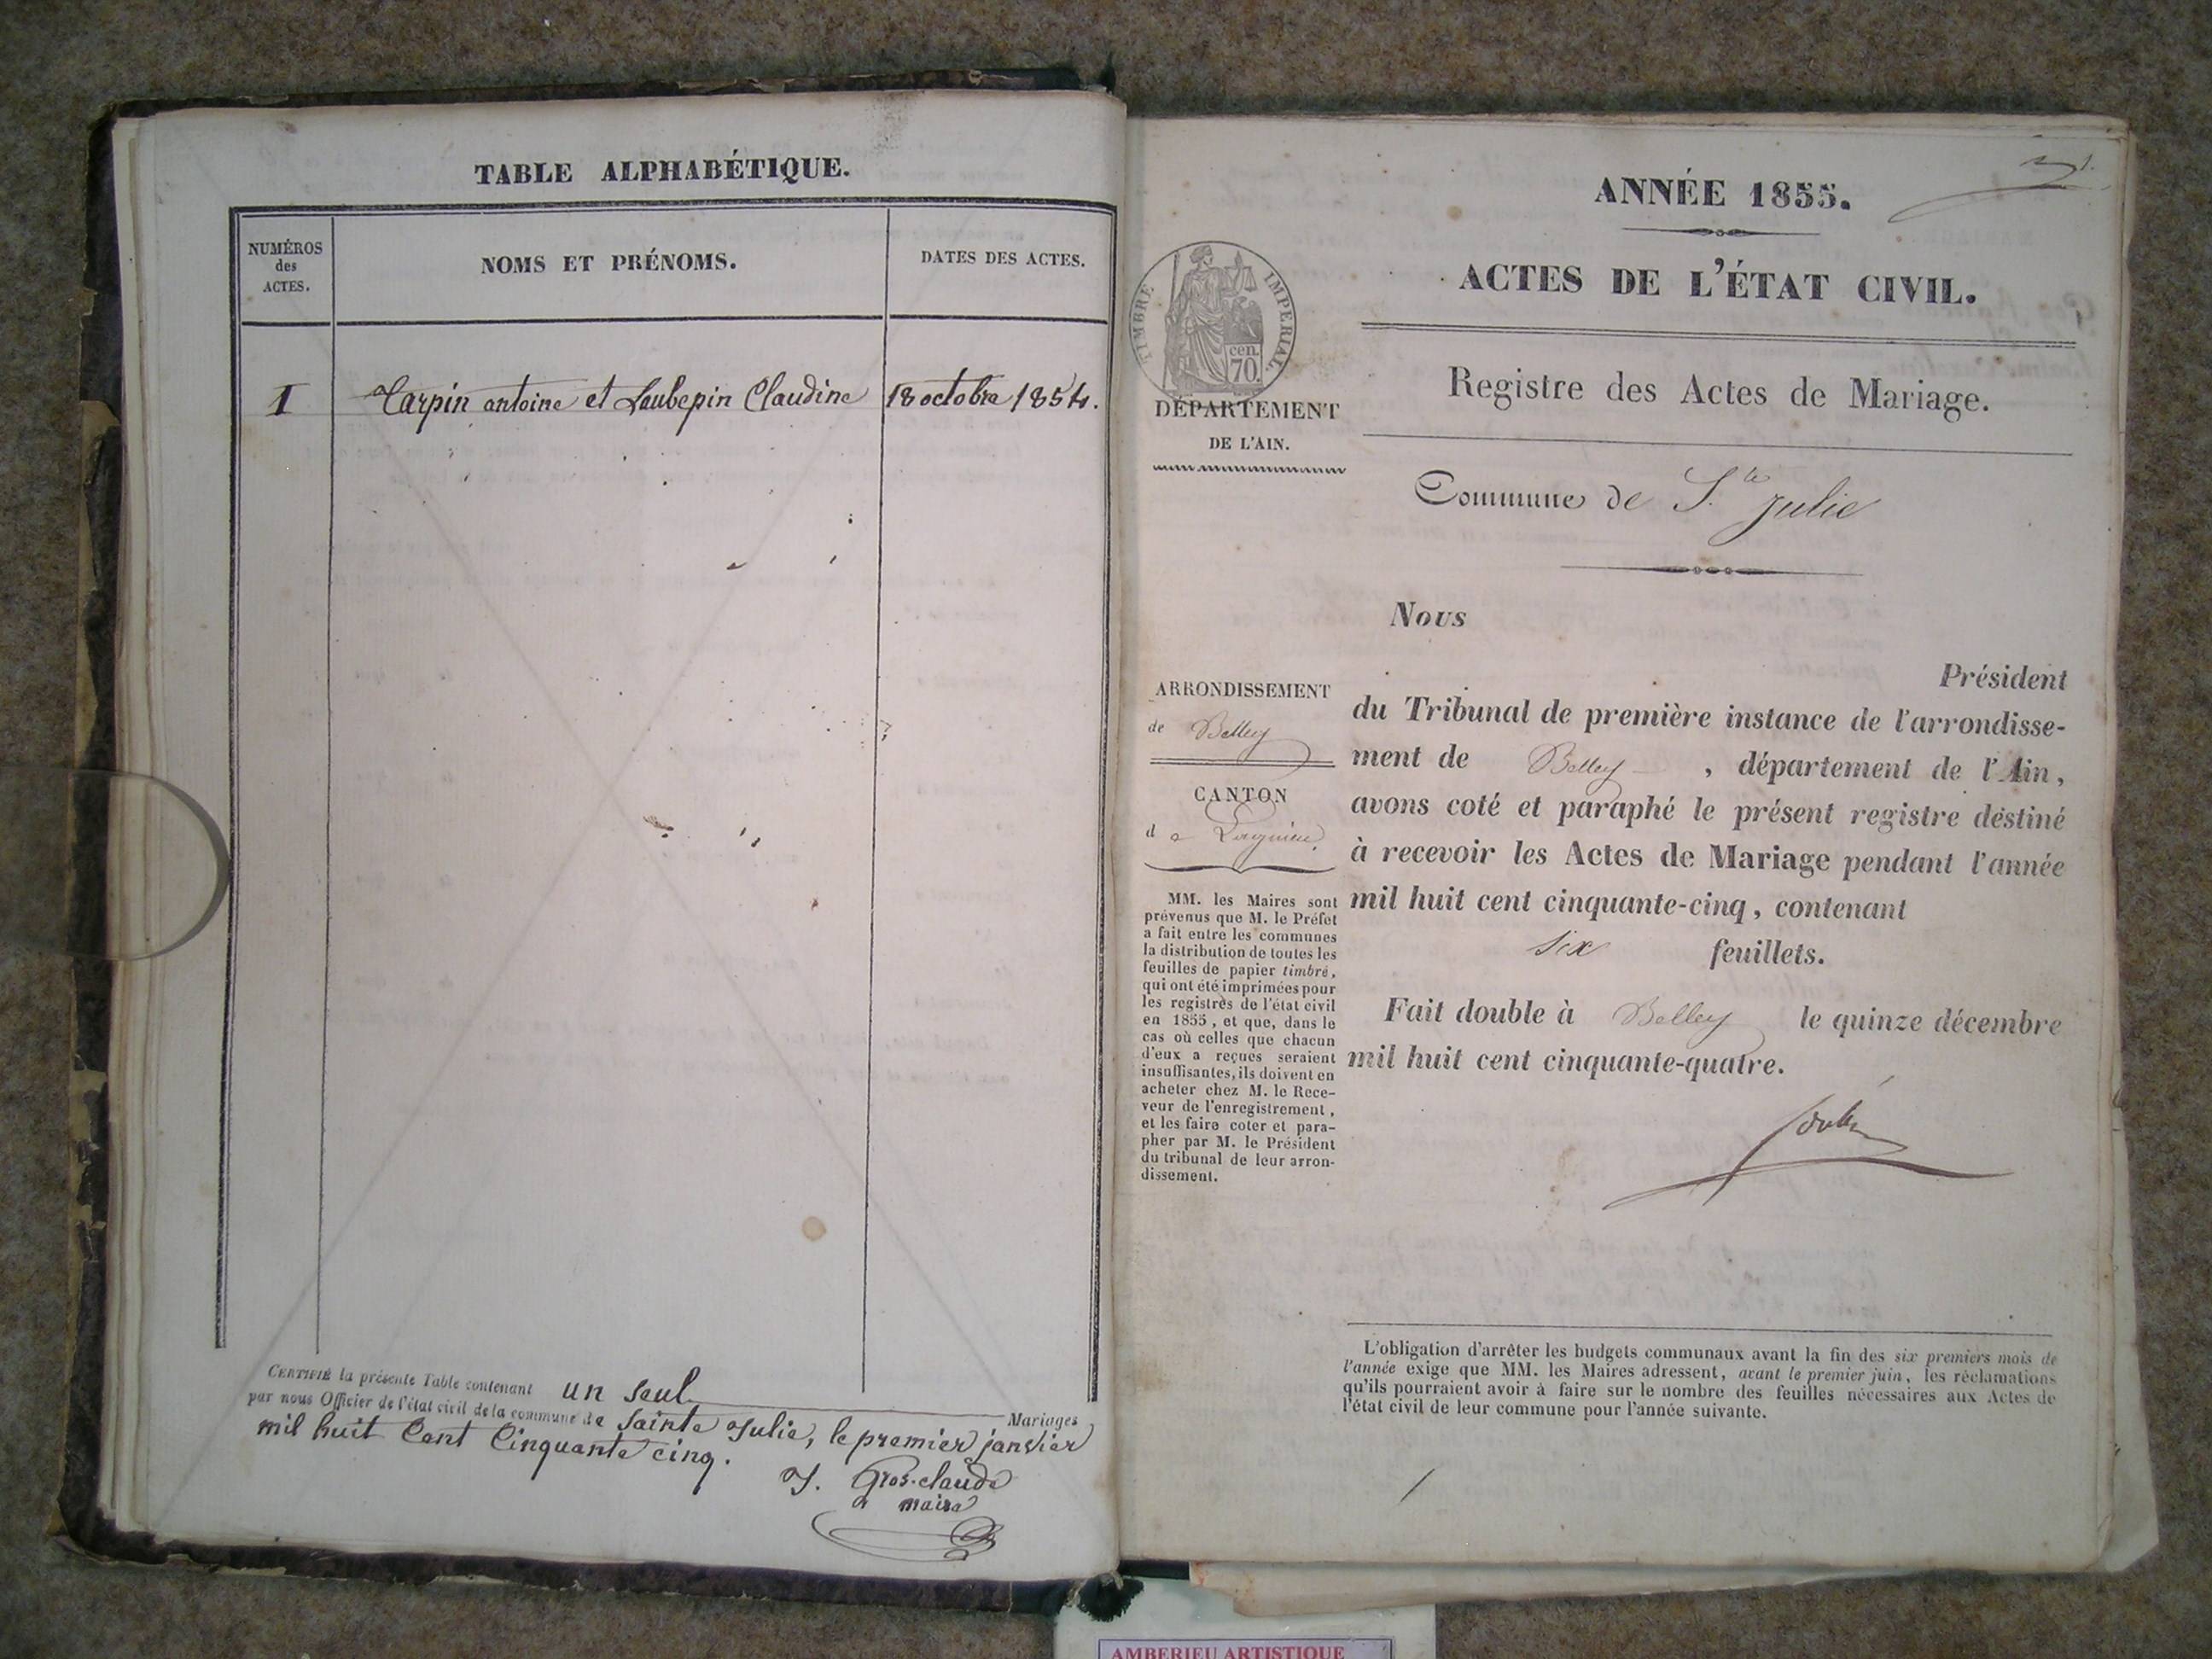 TABLE ALPHABÉTIQUE.
NUMÉROS
des
ACTES.
NOMS ET PRÉNOMS.
DATES DES ACTES.
1 Carpin antoine et Laubepin Claudine 18 octobre 1854.
CERTIFIÉ la présente Table contenant un seul Mariages
par nous Officier de l'état civil de la commune de Sainte Julie, le premier janvier
mil huit Cent Cinquante cinq.
J. Gros-claude
maire
ANNÉE 1855.
ACTES DE L'ÉTAT CIVIL.
TIMBRE IMPERIAL
cen.
70.
DÉPARTEMENT
DE L'AIN.
Registre des Actes de Mariage.
Commune de Ste Julie
ARRONDISSEMENT
de Belley
CANTON
de Lagnieu
MM. les Maires sont
prévenus que M. le Préfet
a fait entre les communes
la distribution de toutes les
feuilles de papier timbré,
qui ont été imprimées pour
les registrès de l'état civil
en 1855, et que, dans le
cas où celles que chacun
d'eux a reçues seraient
insuffisantes, ils doivent en
acheter chez M. le Rece-
veur de l'enregistrement,
et les faire coter et para-
pher par M. le Président
du tribunal de leur arron-
dissement.
Nous
Président
du Tribunal de première instance de l'arrondisse-
ment de Belley, département de l'Ain,
avons coté et paraphé le présent registre destiné
à recevoir les Actes de Mariage pendant l'année
mil huit cent cinquante-cinq, contenant
six feuillets.
Fait double à Belley le quinze décembre
mil huit cent cinquante-quatre.
L'obligation d'arrêter les budgets communaux avant la fin des six premiers mois de
l'année exige que MM. les Maires adressent, avant le premier juin, les réclamations
qu'ils pourraient avoir à faire sur le nombre des feuilles nécessaires aux Actes de
l'état civil de leur commune pour l'année suivante.
AMBERIEU ARTISTIQUE